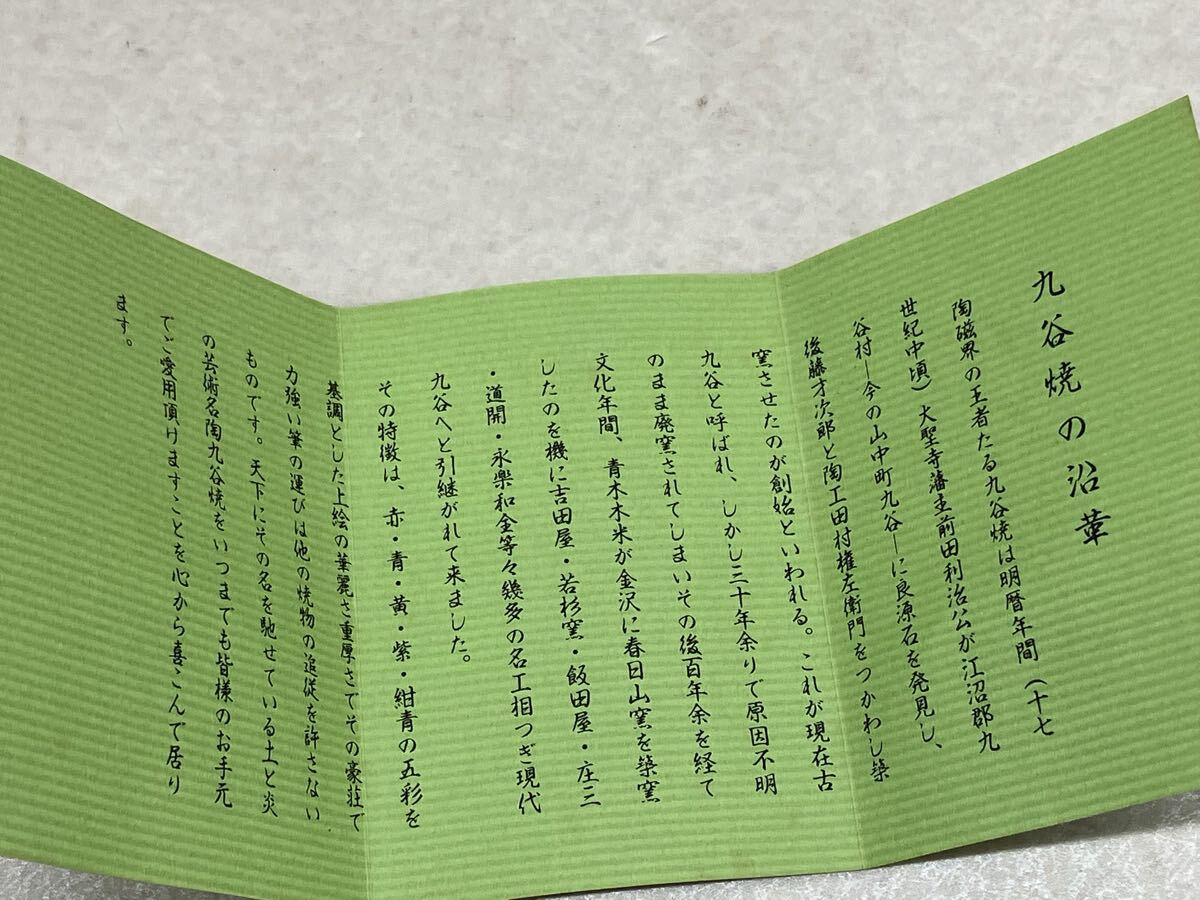 九谷焼の沿革
陶磁界の王者たる九谷焼は明暦年間(十七
世紀中頃)大聖寺藩主前田利治公が江沼郡九
谷村―今の山中町九谷―に良源石を発見し、
後藤才次郎と陶工田村権左衛門をつかわし築
窯させたのが創始といわれる。これが現在古
九谷と呼ばれ、しかし三十年余りで原因不明
のまま廃窯されてしまいその後百年余を経て
文化年間、青木木米が金沢に春日山窯を築窯
したのを機に吉田屋・若杉窯・飯田屋・庄三
・道開・永楽和全等々幾多の名工相つぎ現代
九谷へと引継がれて来ました。
その特徴は、赤・青・黄・紫・紺青の五彩を
基調とした上絵の華麗さ重厚さでその豪荘で
力強い筆の運びは他の焼物の追従を許さない
ものです。天下にその名を馳せている土と炎
の芸術名陶九谷焼をいつまでも皆様のお手元
でご愛用頂けますことを心から喜こんで居り
ます。